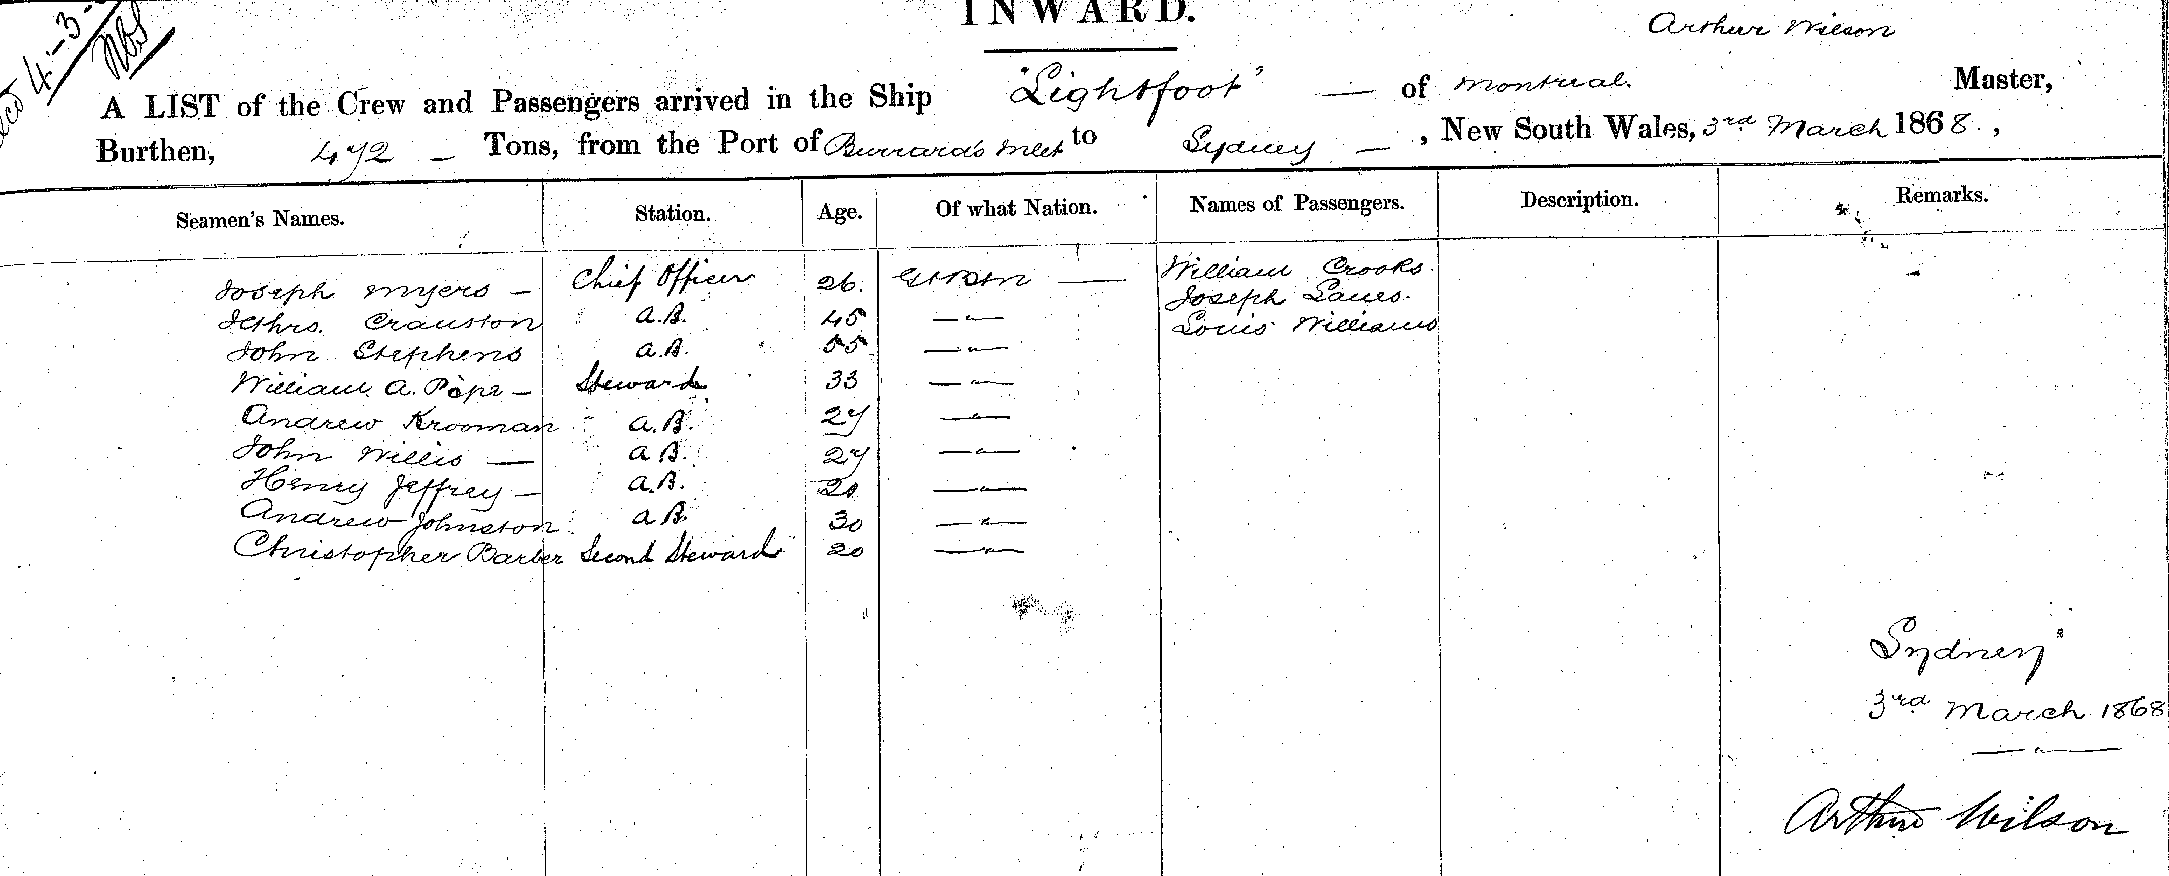 INWARD.
Arthur Wilson
4-3
A LIST of the Crew and Passengers arrived in the Ship "Lightfoot" — of Montreal. Master,
Burthen, 472 — Tons, from the Port of Burrards Inlet to Sydney — , New South Wales, 3rd March 1868. ,
Seamen's Names. Station. Age. Of what Nation. Names of Passengers. Description. Remarks.
Joseph Myers — Chief Officer 26. Gt Btn — William Crooks.
Joseph
Cranston a.B. 45 —"— Louis Williams
John Stephens a.B. 55 —"—
William A. Pope — Steward 33 —"—
Andrew Krooman a.B. 27 —"—
John Willis — a B. 27 —"—
Henry Jeffrey — a.B. 20 —"—
Andrew Johnston a B. 30 —"—
Christopher Barber Second Steward 20 —"—
Sydney
3rd March 1868
—"—
Arthur Wilson